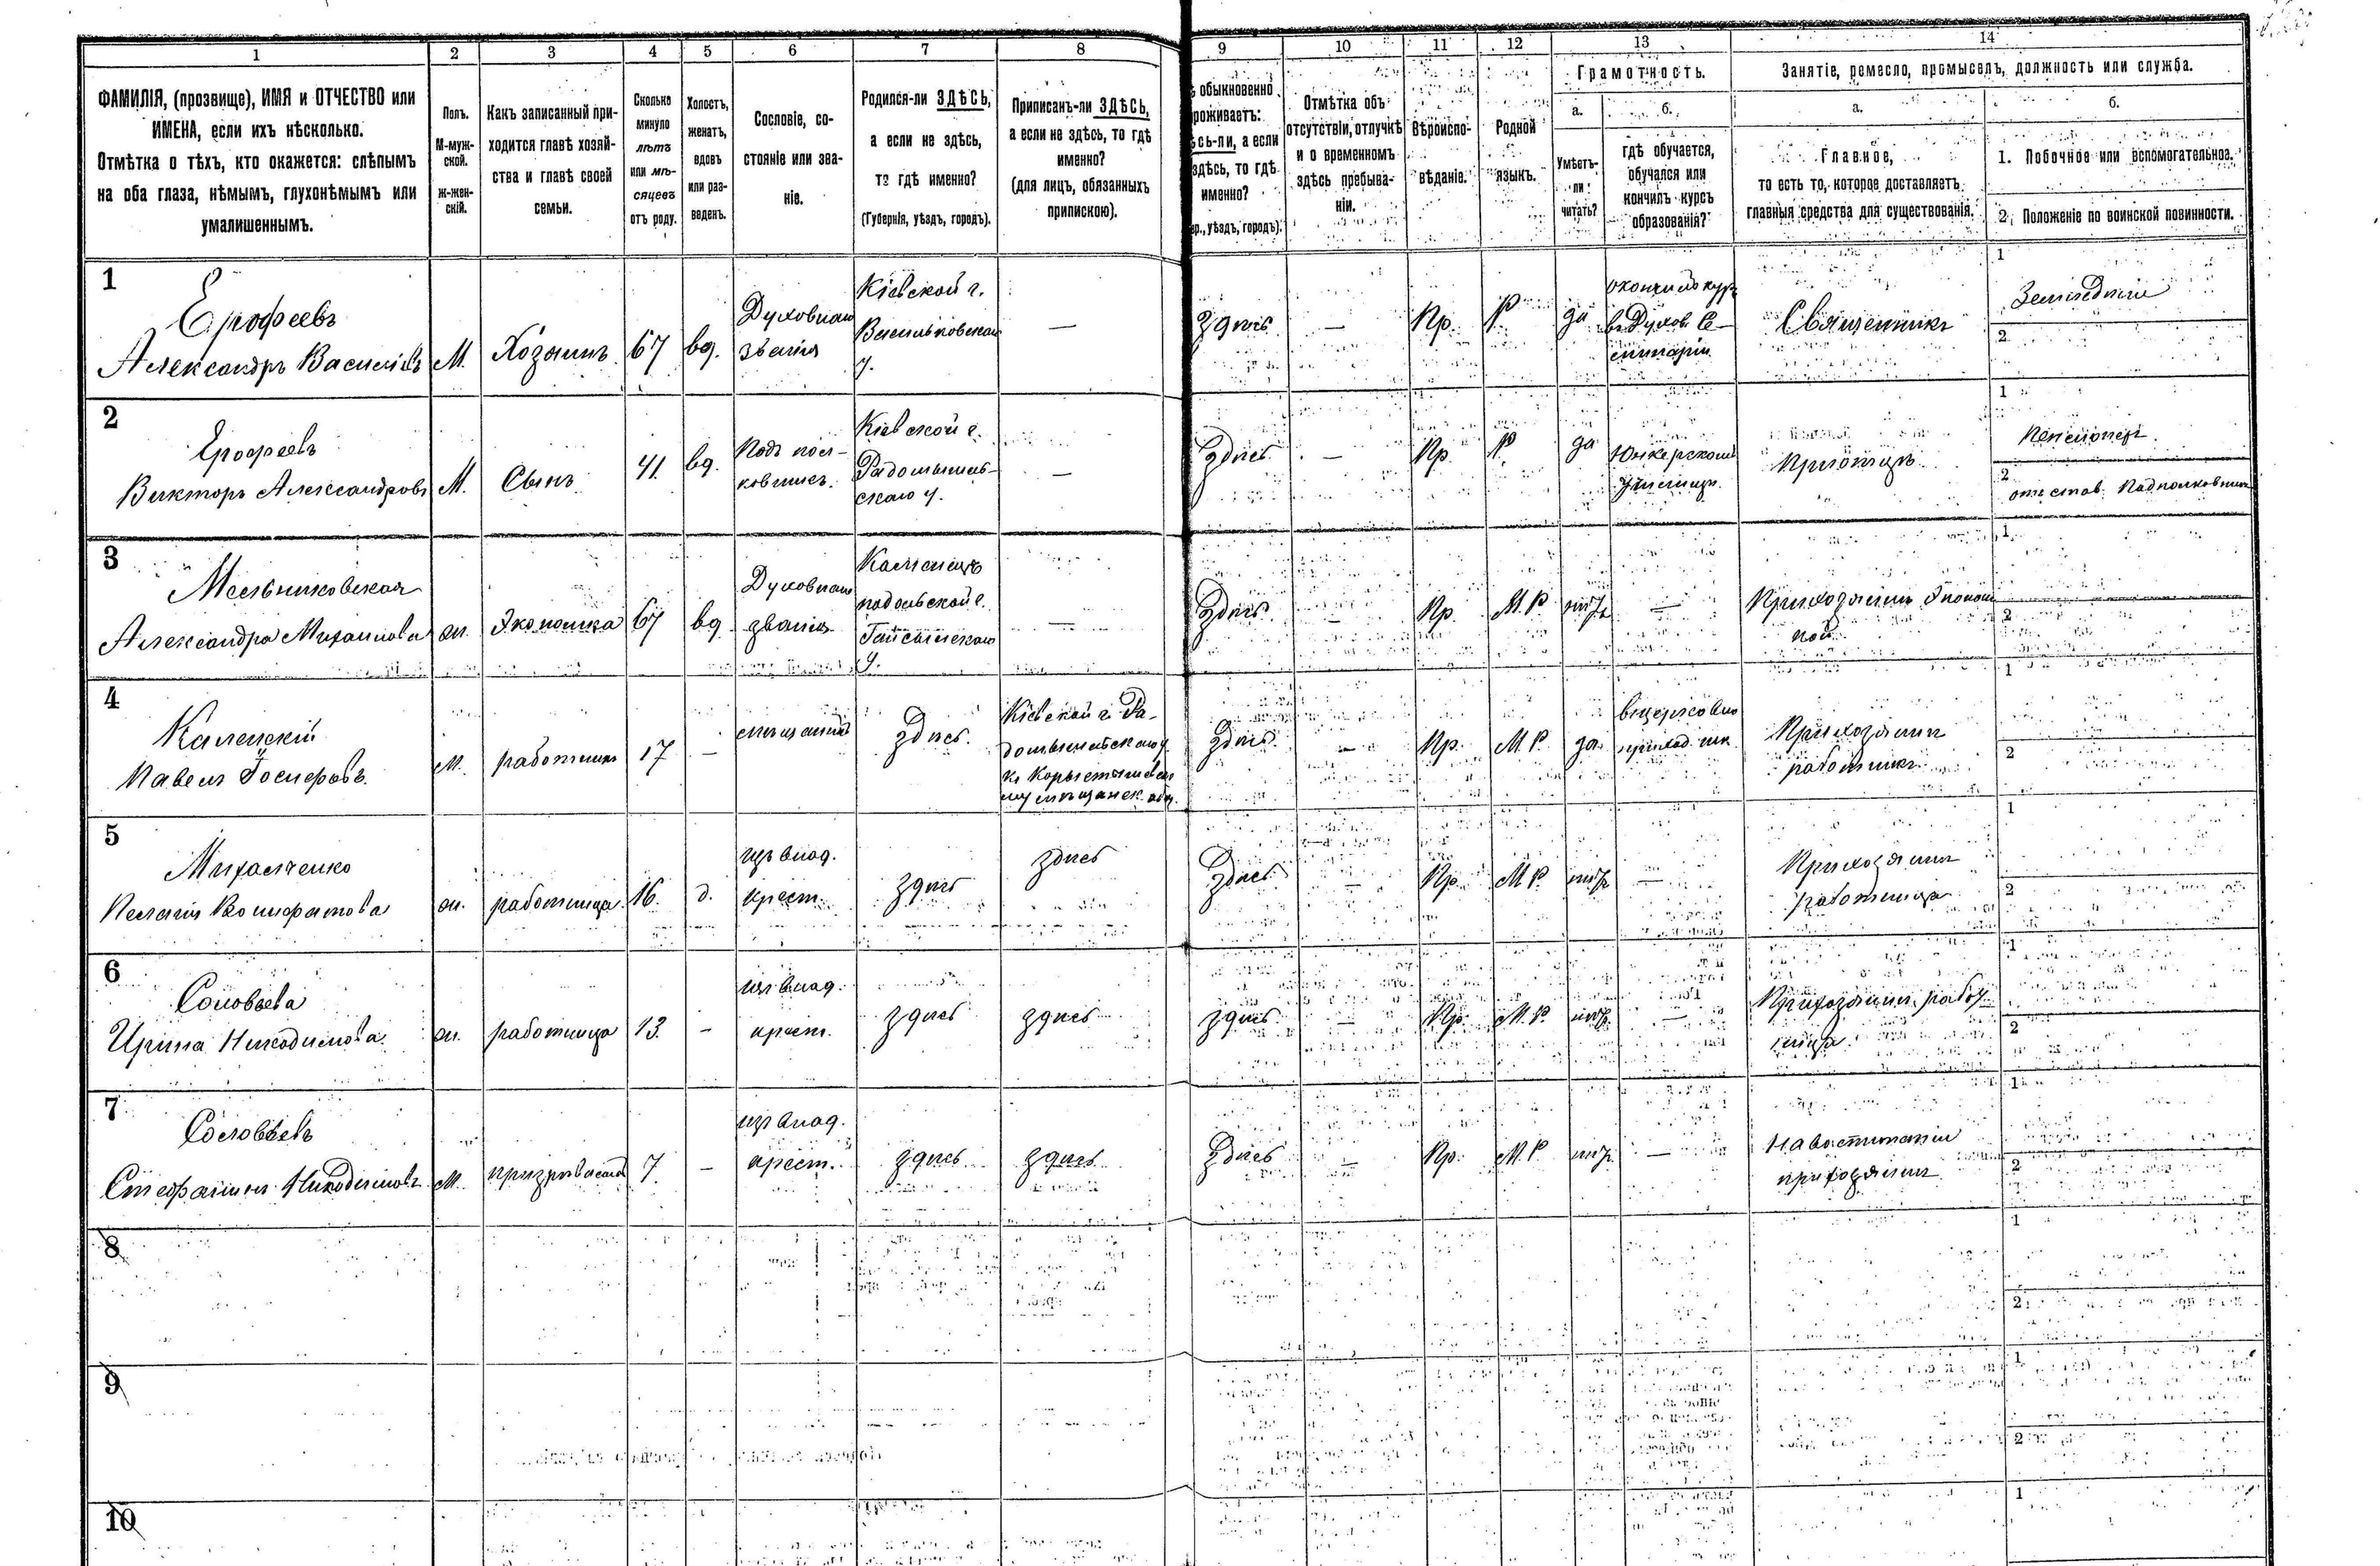 1 2 3 4 5 6 7 8 9 10 11 12 13 14
ФАМИЛІЯ, (прозвище), ИМЯ и ОТЧЕСТВО или
ИМЕНА, если ихъ нѣсколько.
Отмѣтка о тѣхъ, кто окажется: слѣпымъ
на оба глаза, нѣмымъ, глухонѣмымъ или
умалишеннымъ.
Полъ.
М-муж-
ской.
ж-жен-
скій.
Какъ записанный при-
ходится главѣ хозяй-
ства и главѣ своей
семьи.
Сколько
минуло
лѣтъ
или мѣ-
сяцевъ
отъ роду.
Холостъ,
женатъ,
вдовъ
или раз-
веденъ.
Сословіе, со-
стояніе или зва-
ніе.
Родился-ли ЗДѢСЬ,
а если не здѣсь,
то гдѣ именно?
(Губернія, уѣздъ, городъ).
Приписанъ-ли ЗДѢСЬ,
а если не здѣсь, то гдѣ
именно?
(для лицъ, обязанныхъ
припискою).
обыкновенно
роживаетъ:
сь-ли, а если
здѣсь, то гдѣ
именно?
р., уѣздъ, городъ).
Отмѣтка объ
отсутствіи, отлучкѣ
и о временномъ
здѣсь пребыва-
ніи.
Вѣроиспо-
вѣданіе.
Родной
языкъ.
Грамотность.
а.
Умѣетъ-
ли
читать?
б.
гдѣ обучается,
обучался или
кончилъ курсъ
образованія?
Занятіе, ремесло, промыселъ, должность или служба.
а.
Главное,
то есть то, которое доставляетъ
главныя средства для существованія.
б.
1. Побочное или вспомогательное.
2. Положеніе по воинской повинности.
1
Ерофеевъ
Александръ Василіевъ
М.
Хозяинъ
67
вд.
Духовнаго
званія
Кіевской г.
Васильковскаго
у.
—
здѣсь
—
Пр.
Р
да
въ Духов. Се-
минаріи
Священникъ
1
Земледѣліе
2
2
Ерофеевъ
Викторъ Александровъ
М.
Сынъ
41
вд.
Подъ пол-
ковникъ.
Кіевской г.
Радомысль-
скаго у.
—
здѣсь
—
Пр.
Р
да
Юнкерскомъ
Училищѣ
1
Пенсіонеръ
2
отстав. Подполковникъ
3
Мельниковская
Александра Михайлова
ж.
Экономка
67
вд.
Духовнаго
званія
Каменецъ
подольской г.
Гайсинскаго
у.
—
здѣсь
Пр.
М.Р.
нѣтъ
—
1
2
4
Каленскій
Павелъ Іосифовъ
М.
работникъ
17
—
мѣщанинъ
здѣсь.
Кіевской г. Ра-
домысльскаго у.
къ Коростышевско
му мѣщанск. общ.
здѣсь
—
Пр.
М.Р.
да
церковно
приход. шк.
работникъ
1
2
5
Михальченко
Пелагія Вонифатова
ж.
работница
16.
д.
изъ влад.
крест.
здѣсь
здѣсь
здѣсь
—
Пр.
М.Р.
нѣтъ
—
работница
1
2
6
Соловьева
Ирина Никодимова
ж.
работница
13.
—
изъ влад.
крест.
здѣсь
здѣсь
здѣсь
—
Пр.
М.Р.
нѣтъ
—
1
2
7
Соловьевъ
Никодимовъ
М.
7
—
изъ влад.
крест.
здѣсь
здѣсь
здѣсь
—
Пр.
М.Р.
нѣтъ
—
1
2
8
1
2
9
1
2
10
1